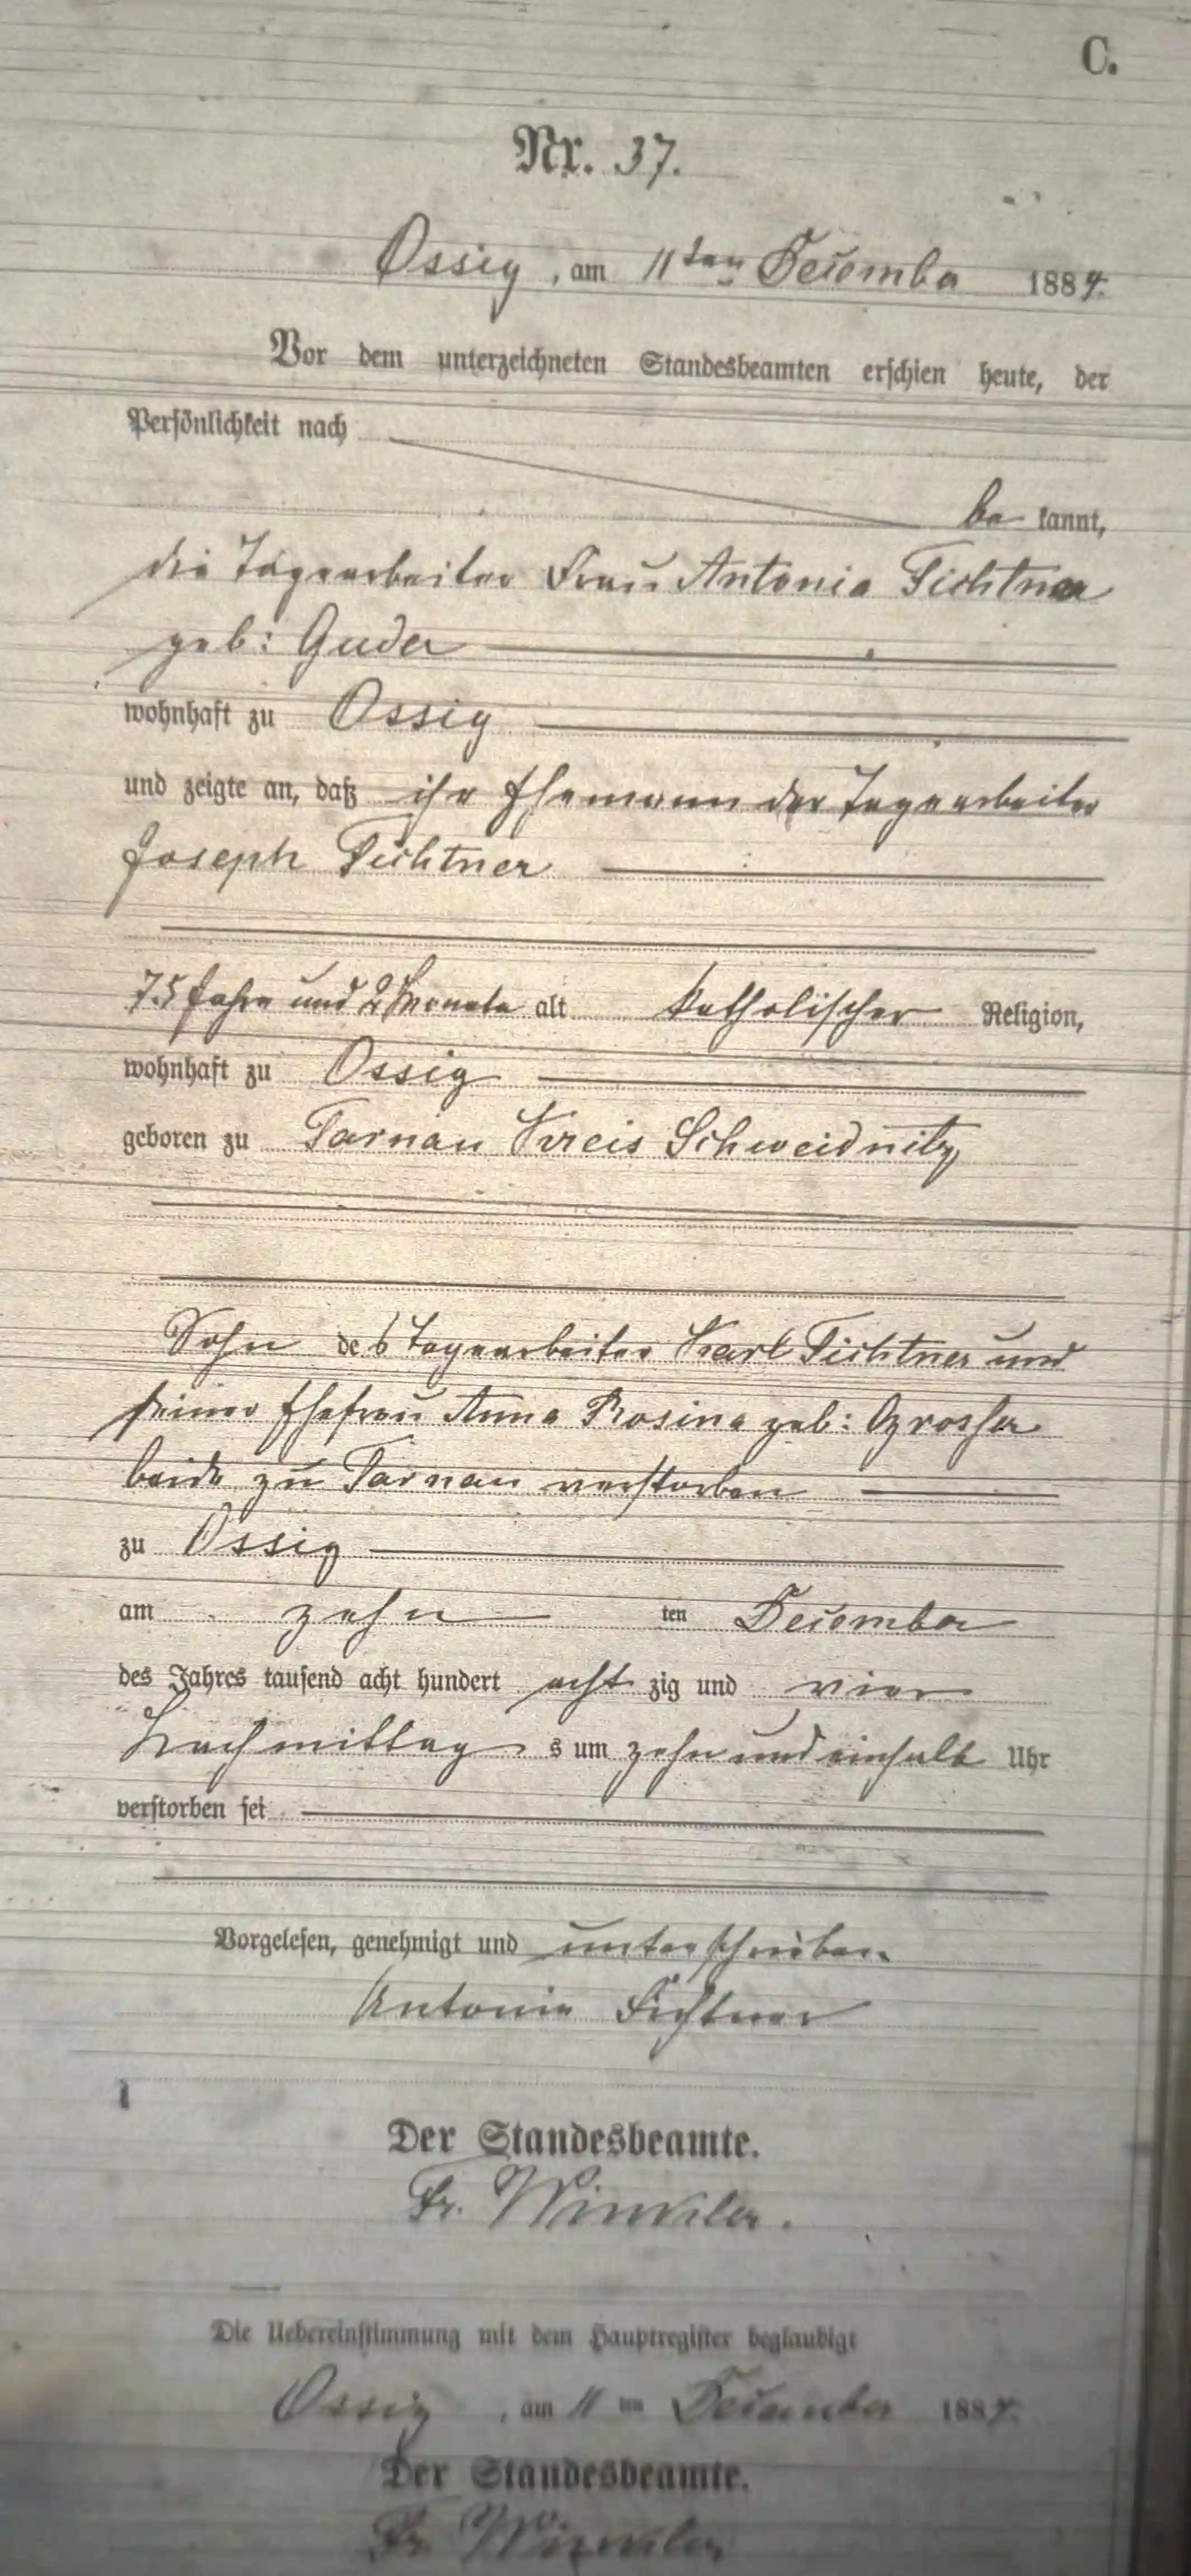 C.
Nr. 37.
Ossig, am 11ten December 1884.
Vor dem unterzeichneten Standesbeamten erschien heute, der
Persönlichkeit nach
be kannt,
die Tagearbeiter Frau Antonia Fichtner
geb: Guder
wohnhaft zu Ossig
und zeigte an, daß ihr Ehemann der Tagearbeiter
Joseph Fichtner
75 Jahre und 2 Monate alt katholischer Religion,
wohnhaft zu Ossig
geboren zu Tarnau Kreis Schweidnitz
Sohn des Tagearbeiter Karl Fichtner und
seiner Ehefrau Anna Rosina geb: Grosser
beide zu Tarnau verstorben
zu Ossig
am zehn ten December
des Jahres tausend acht hundert acht zig und vier
Nachmittag s um zehn und einhalb Uhr
verstorben sei
Vorgelesen, genehmigt und unterschrieben
Antonie Fichtner
Der Standesbeamte.
Fr. Winkler.
Die Uebereinstimmung mit dem Hauptregister beglaubigt
Ossig, am 11 ten December 1884.
Der Standesbeamte.
Fr. Winkler